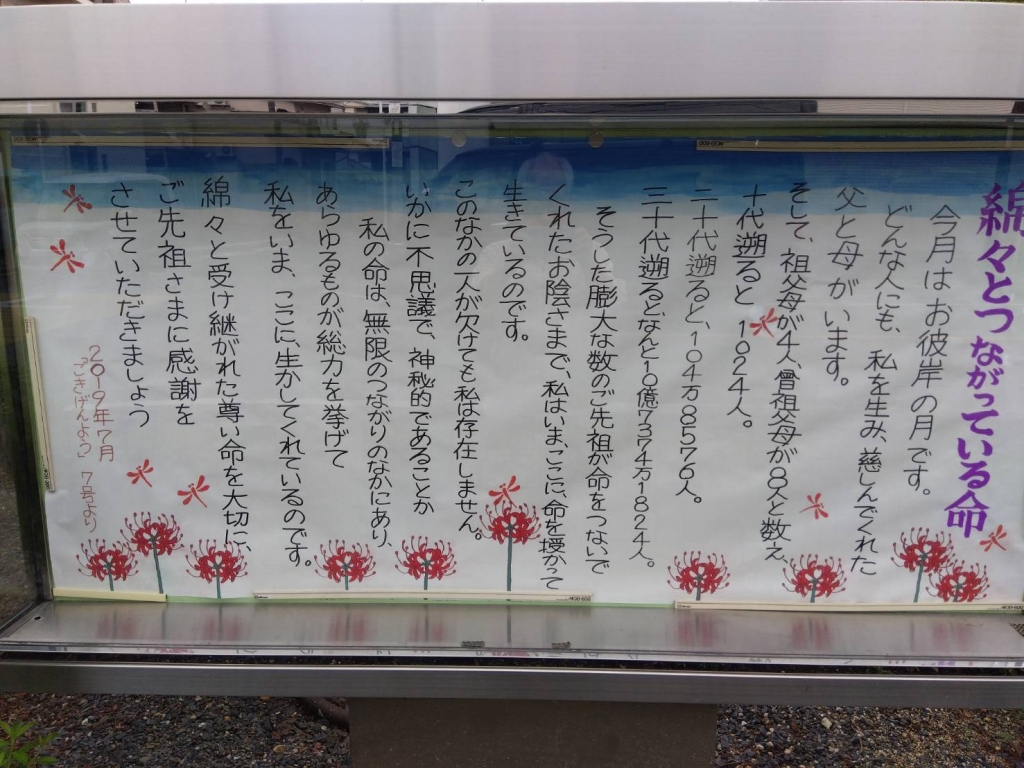 綿々とつながっている命
今月はお彼岸の月です。
どんな人にも、私を生み、慈しんでくれた
父と母がいます。
そして、祖父母が4人、曾祖父母が8人と数え
十代遡ると1024人。
二十代遡ると、104万8576人。
三十代遡るとなんと10億7374万1824人。
そうした膨大な数のご先祖が命をつないで
くれたお陰さまで、私はいま、ここに、命を授かって
生きているのです。
このなかの一人が欠けても私は存在しません。
いかに不思議で、神秘的であることか
私の命は、無限のつながりのなかにあり、
あらゆるものが総力を挙げて
私をいま、ここに、生かしてくれているのです。
綿々と受け継がれた尊い命を大切に、
ご先祖さまに感謝を
させていただきましょう
2019年7月
「ごきげんよう」7号より